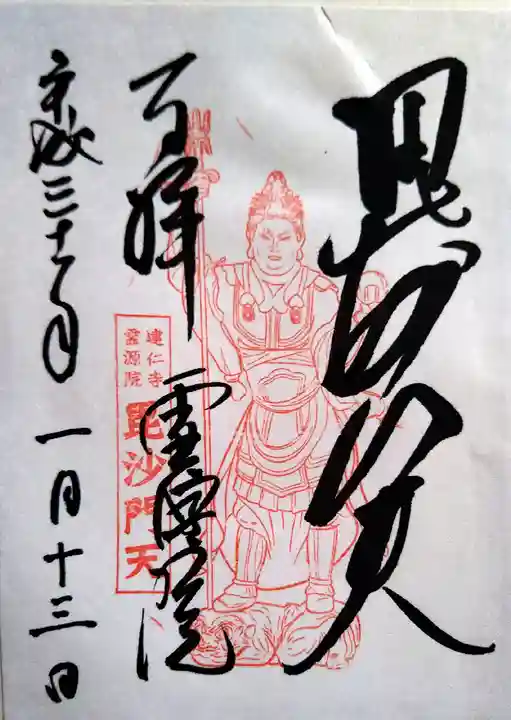 毘沙门天
百拝
霊源院
建仁寺
霊源院
毘沙門天
平成三十一年
一月十三日